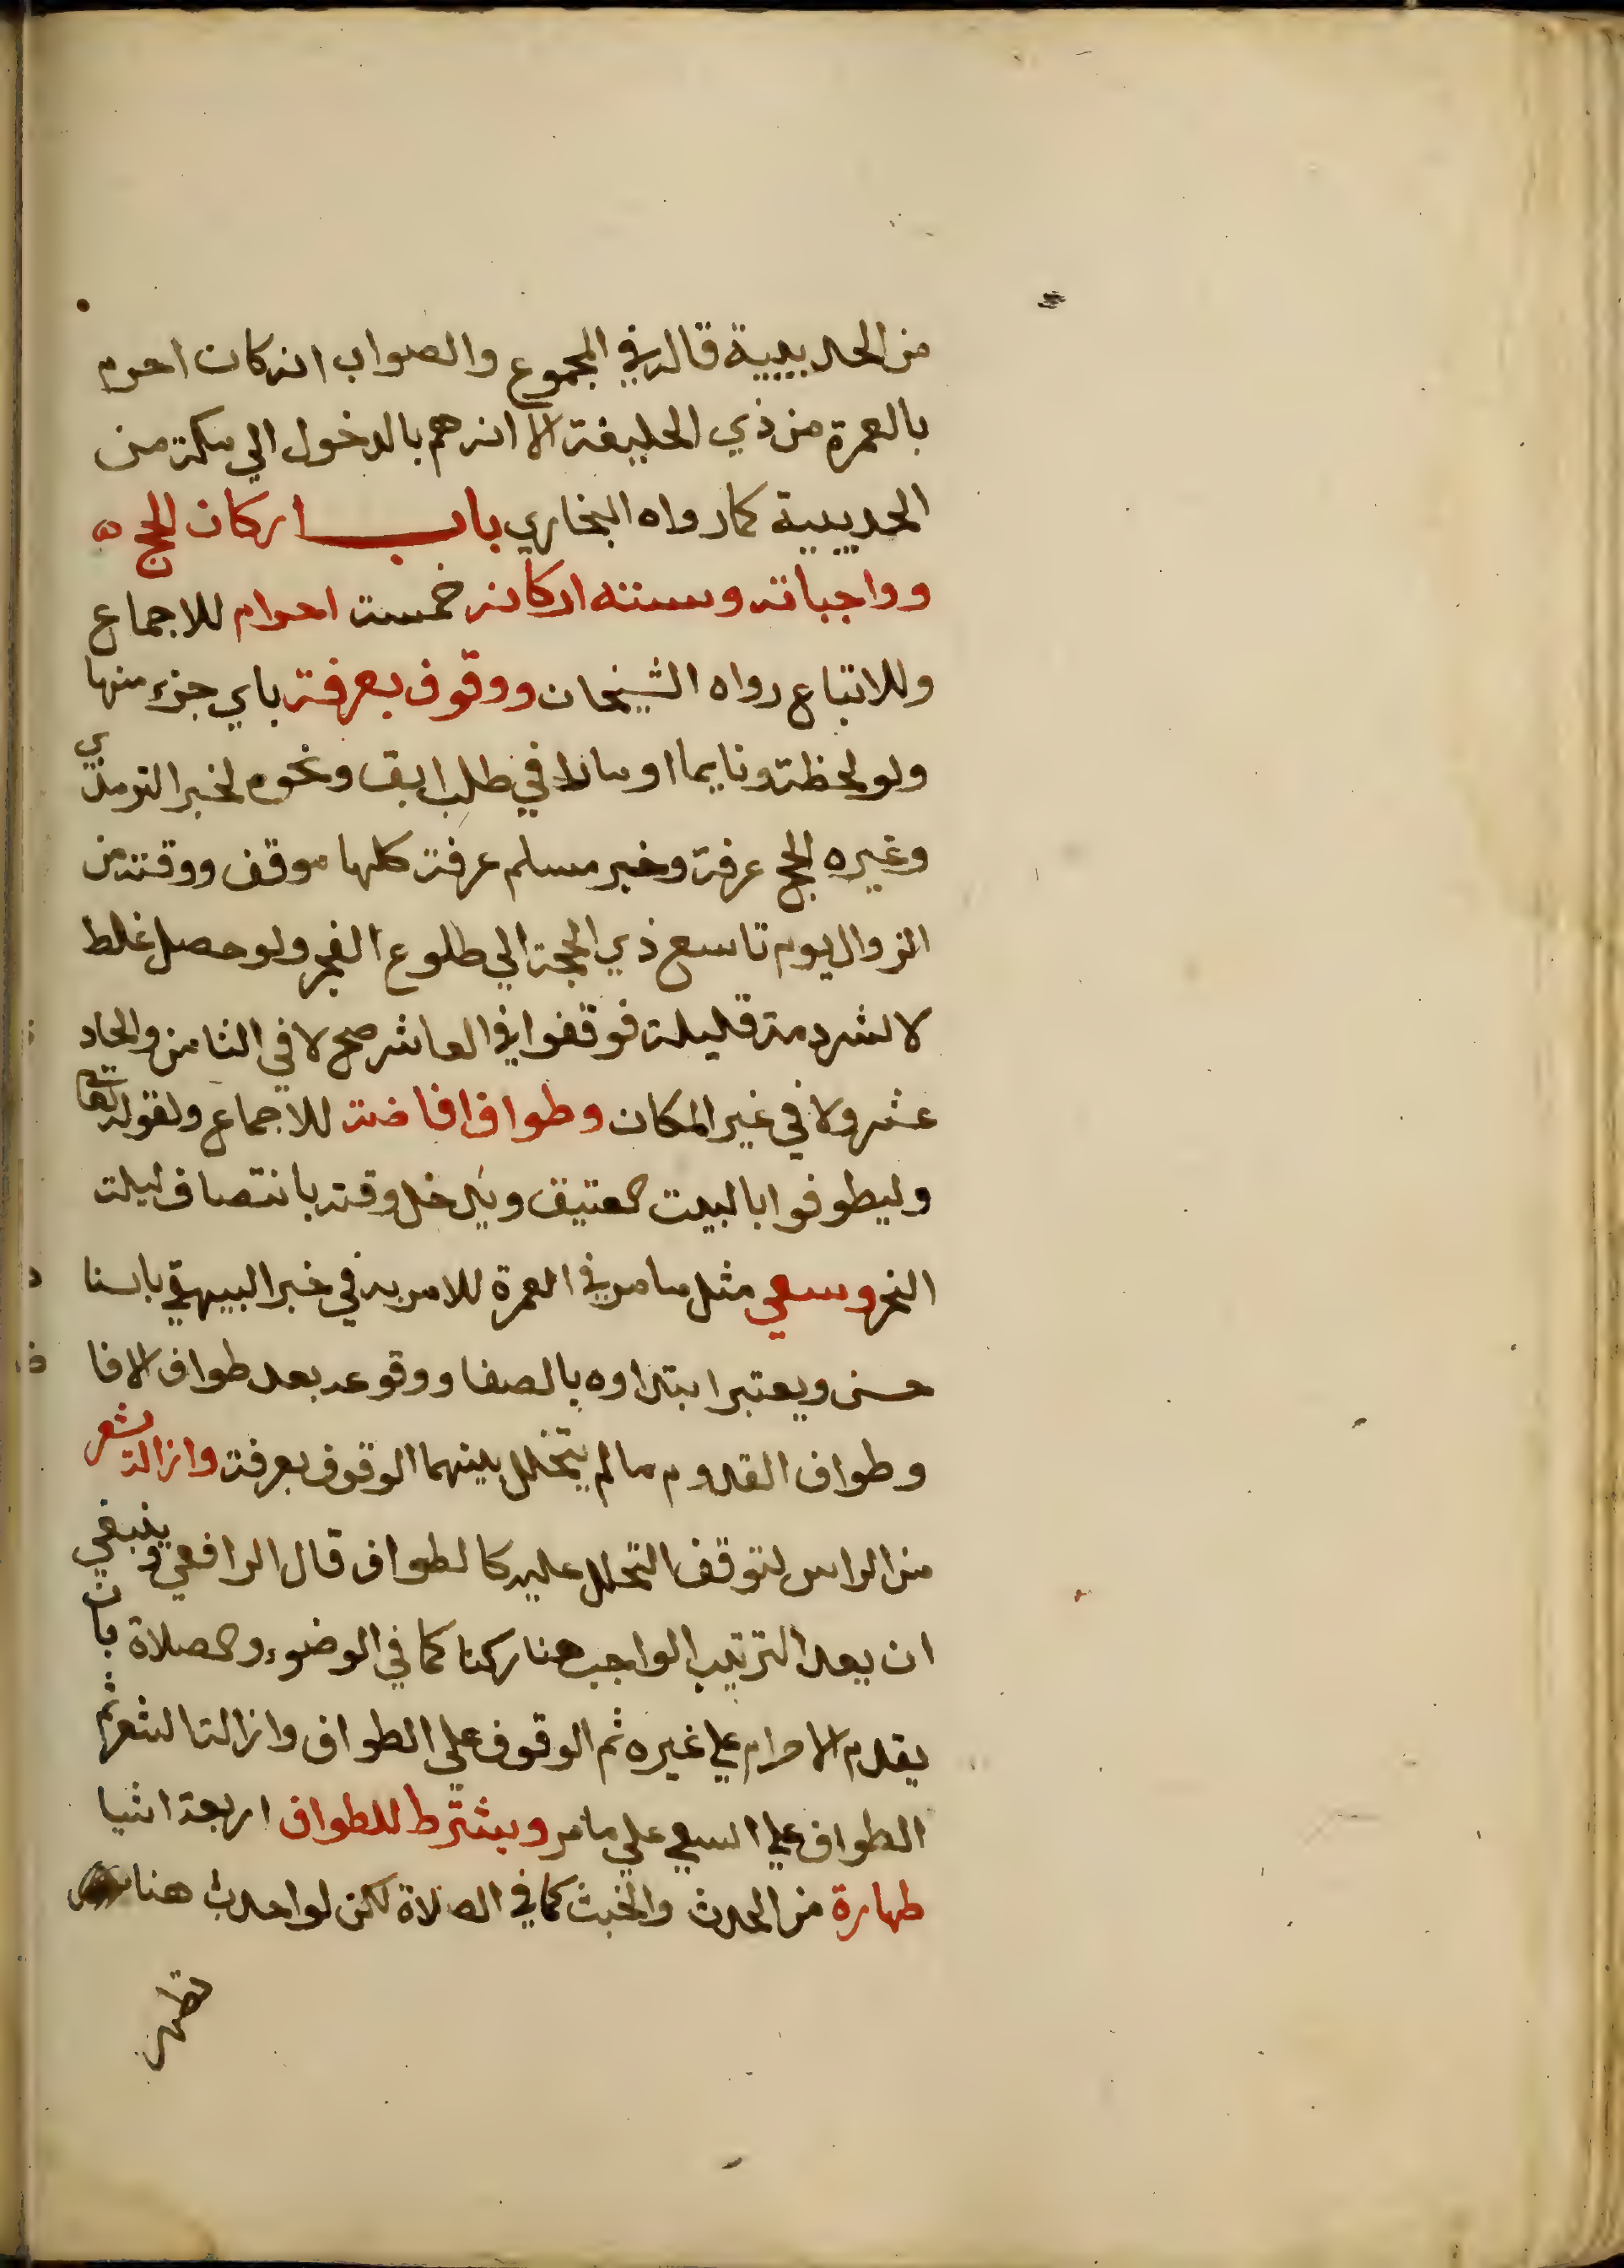 من الحديبية قاله في المجموع والصواب انه كان احرم
بالعمرة من ذي الحليفة الا انه هم بالدخول الي مكة من
الحديبية كما رواه البخاري باب اركان الحج ه
وواجباته وسننه اركانه خمسة احرام للاجماع
وللاتباع رواه الشيخان ووقوف بعرفة باي جزء منها
ولو لحظة ونايما او مارا في طلب ابق ونحوه لخبر الترمذي
وغيره الحج عرفة وخبر مسلم عرفة كلها موقف ووقته من
الزوال يوم تاسع ذي الحجة الي طلوع الفجر ولو حصل غلط
لا لشردمة قليلة فوقفوا في العاشر صح لا في الثامن والحاد
عشر ولا في غير المكان وطواف افاضة للاجماع ولقوله تعالي
وليطوفوا بالبيت العتيق ويدخل وقته بانتصاف ليلة
النحر وسعي مثل ما مر في العمرة للامر به في خبر البيهقي باسنا
حسن ويعتبر ابتداوه بالصفا ووقوعه بعد طواف الافا
وطواف القدوم ما لم يتخلل بينهما الوقوف بعرفة وازالة شعر
من الراس لتوقف التحلل عليه كالطواف قال الرافعي وينبغي
ان يعد الترتيب الواجب هنا ركنا كما في الوضوء والصلاة بان
يقدم الاحرام علي غيره ثم الوقوف علي الطواف وازالة الشعر ثم
الطواف علي السعي علي ما مر ويشترط للطواف اربعة اشيا
طهارة من الحدث والخبث كما في الصلاة لكن لو احدث هنا
تطهر